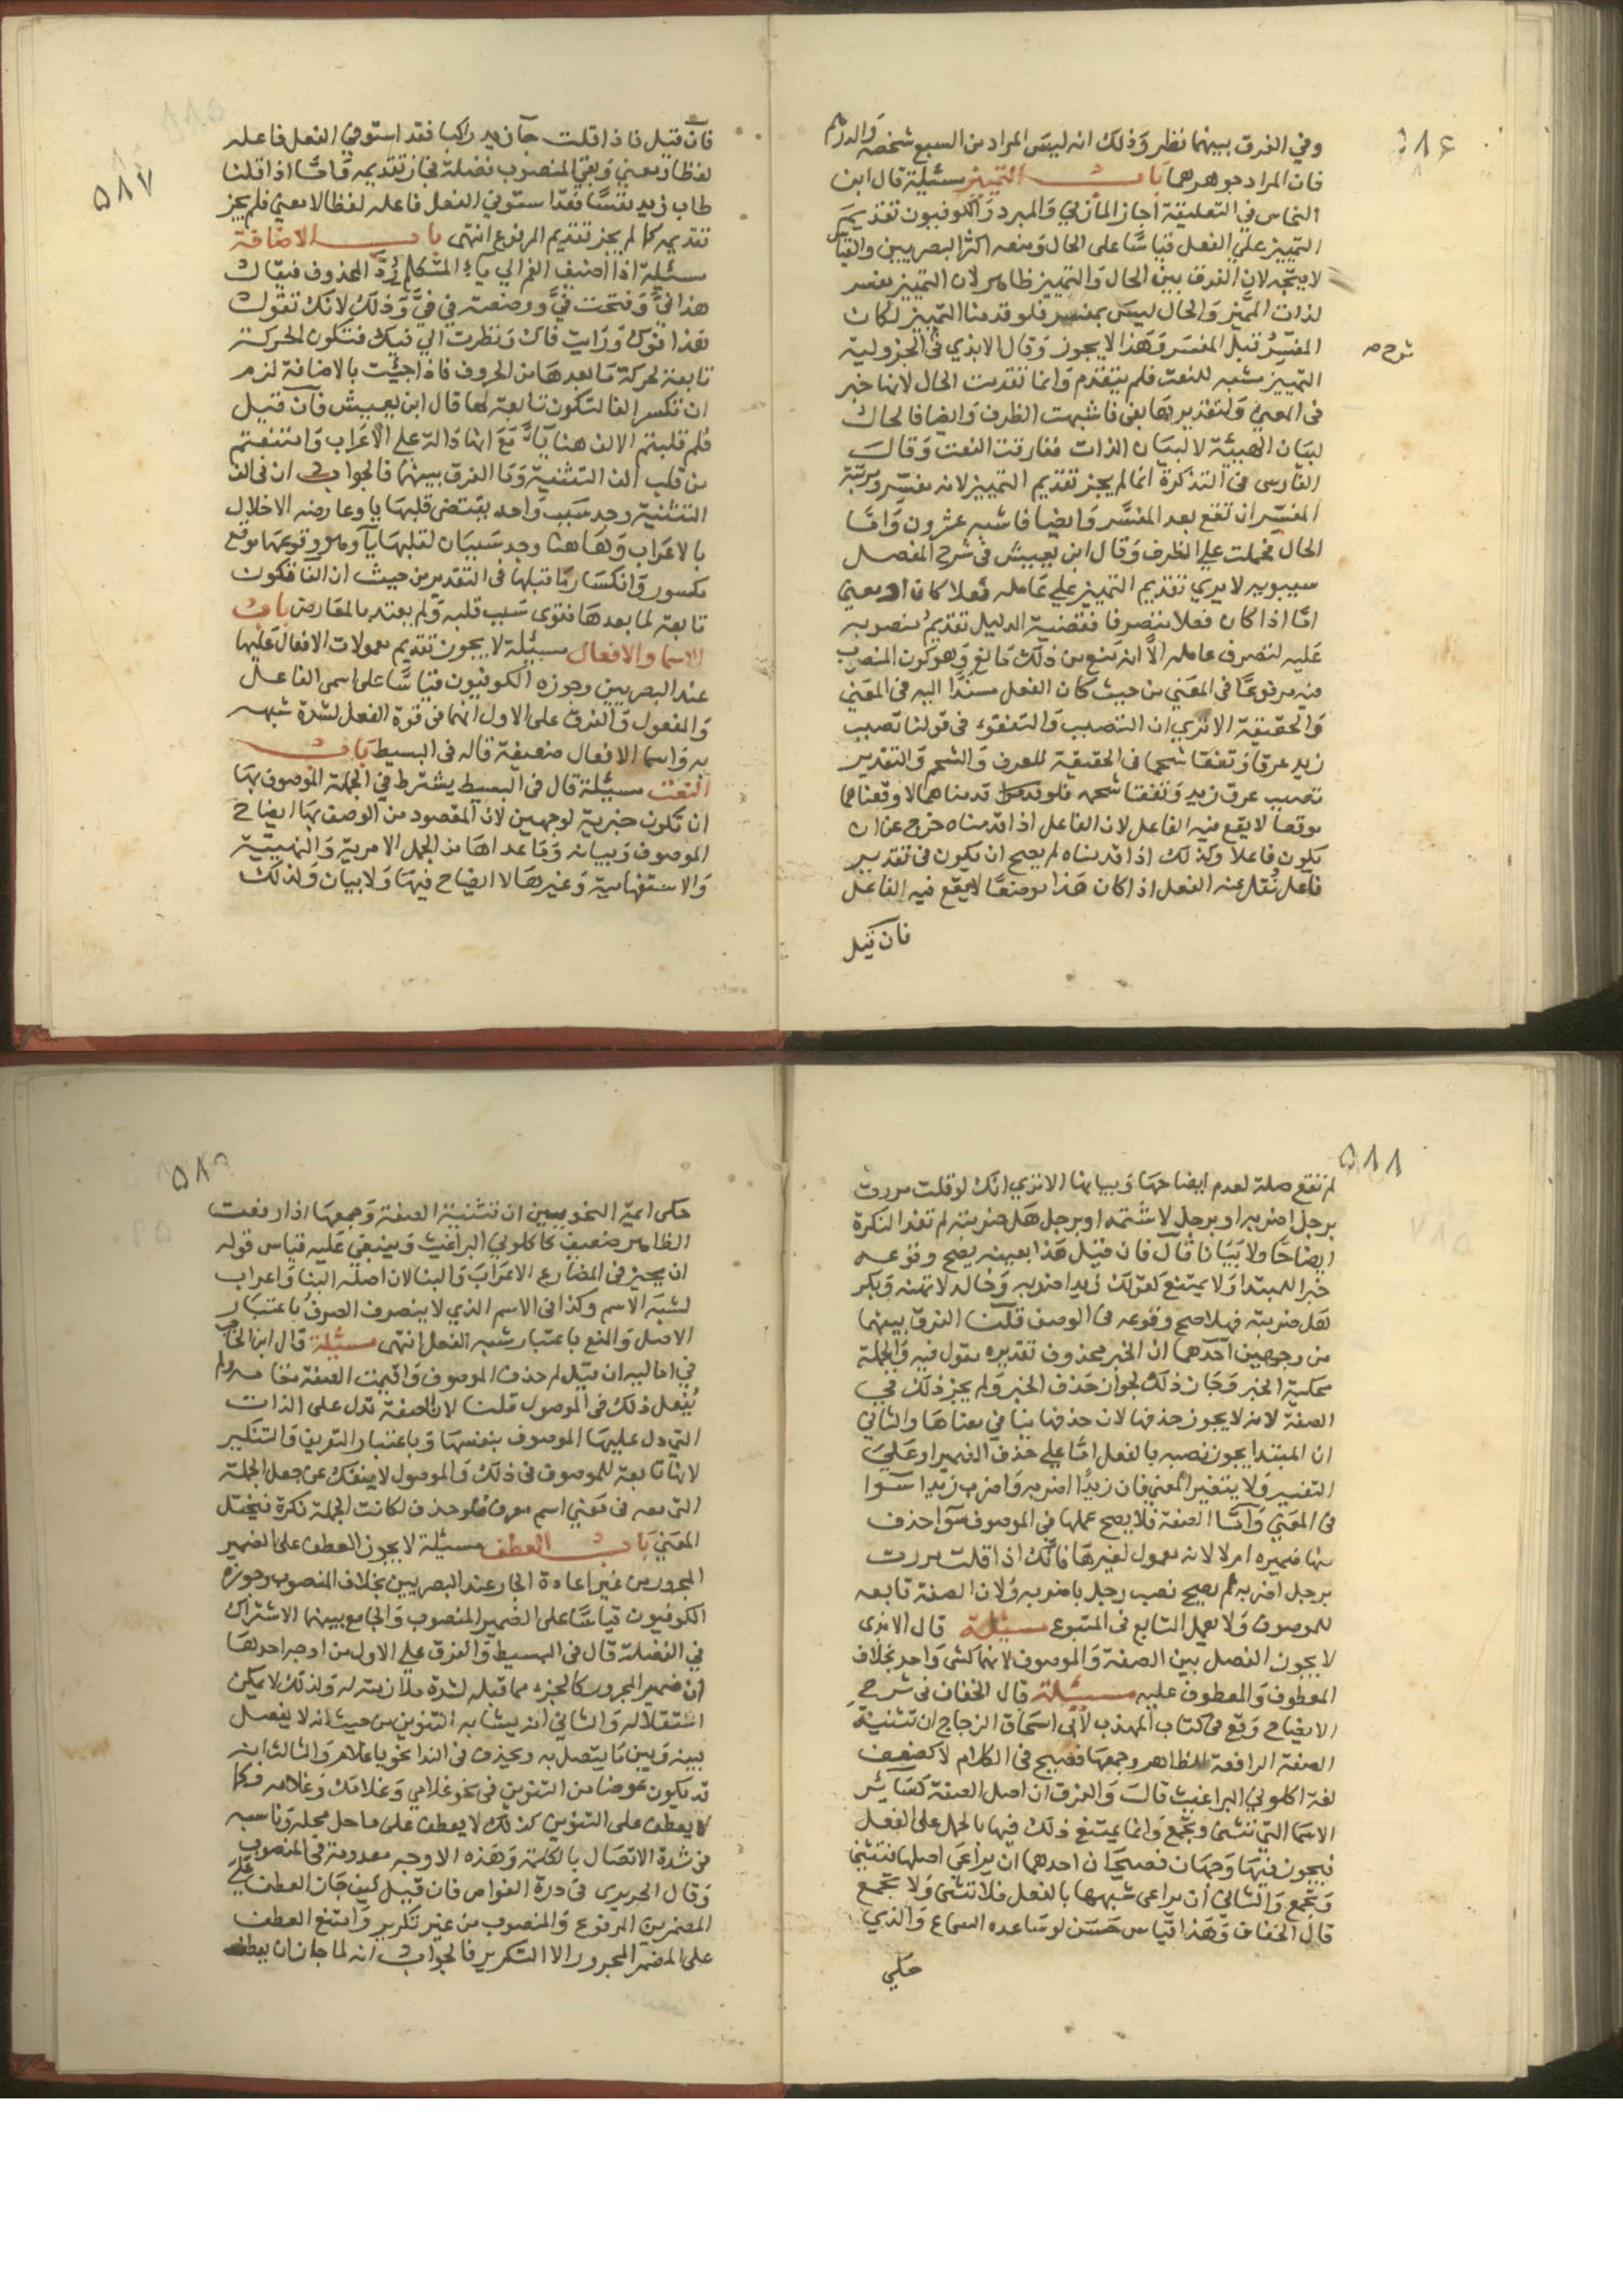 ٥٨٦
وفي الفرق بينهما نظر وذلك انه ليس المراد من السبع شخصه والدرهم
فان المراد جوهرهما باب التمييز مسئلة قال ابن
النحاس في التعليقة اجاز المازني والمبرد والكوفيون تقديم
التمييز علي الفعل قياسا على الحال ومنعه اكثر البصريين والقياس
لا يتجه لان الفرق بين الحال والتمييز ظاهر لان التمييز مفسر
لذات المميز والحال ليس بمفسر فلو قدمنا التمييز لكان
المفسر قبل المفسر وهذا لا يجوز وقال الابذي في الجزولية
شرح صح
التمييز مشبه للنعت فلم يتقدم وانما تقدمت الحال لانها خبر
في المعني ولتقديرها بفي فاشبهت الظرف وايضا فالحال
لبيان الهيئة لا لبيان الذات ففارقت النعت وقال
الفارسي في التذكرة انما لم يجز تقديم التمييز لانه مفسر ومرتبة
المفسر ان تقع بعد المفسر وايضا فاشبه عشرون واما
الحال فحملت علي الظرف وقال ابن يعيش في شرح المفصل
سيبويه لا يري تقديم التمييز علي عامله فعلا كان او معني
اما اذا كان فعلا متصرفا فقضية الدليل تقديم منصوبه
عليه لتصرف عامله الا انه منع من ذلك مانع وهو كون المنصوب
فيه مرفوعا في المعني من حيث كان الفعل مسندا اليه في المعني
والحقيقة الا تري ان التصبب والتفقؤ في قولنا تصبب
زيد عرقا وتفقا شحما في الحقيقة للعرق والشحم والتقدير
تصبب عرق زيد وتفقا شحمه فلو قدمناهما لاوقعناهما
موقعا لا يقع فيه الفاعل لان الفاعل اذا قدمناه خرج عن ان
يكون فاعلا وكذلك اذا قدمناه لم يصح ان يكون في تقدير
فاعل نقل عنه الفعل اذا كان هذا موضعا لا يقع فيه الفاعل
فان قيل
٥٨٧
فان قيل فاذا قلت جا زيد راكبا فقد استوفي الفعل فاعله
لفظا ومعني وبقي المنصوب فضلة فجاز تقديمه واما اذا قلنا
طاب زيد نفسا فقد استوفي الفعل فاعله لفظا لا معني فلم يجز
تقديمه كما لم يجز تقديم المرفوع انتهى باب الاضافة
مسئلة اذا اضيف الفم الي ياء المتكلم رد المحذوف فيقال
هذا في وفتحت في ووضعته في في وذلك لانك تقول
هذا فوك ورايت فاك ونظرت الي فيك فتكون الحركة
تابعة لحركة ما بعدها من الحروف فاذا جئت بالاضافة لزم
ان تكسر الفا لتكون تابعة لها قال ابن يعيش فان قيل
فلم قلبتم الالف هنا ياء مع انها دالة علي الاعراب وامتنعتم
من قلب الف التثنية وما الفرق بينهما فالجواب ان في الف
التثنية وجد سبب واحد يقتضي قلبها يا وعارضه الاخلال
بالاعراب وهاهنا وجد سببان لقلبها ياء وهو وقوعها موقع
مكسور وانكسار ما قبلها في التقدير من حيث ان الفا تكون
تابعة لما بعدها فقوى سبب قلبه ولم يعتد بالمعارض باب
الاسما والافعال مسئلة لا يجوز تقديم معمولات الافعال عليها
عند البصريين وجوزه الكوفيون قياسا على اسمي الفاعل
والمفعول والفرق على الاول انهما في قوة الفعل لشدة شبهه
به واسما الافعال ضعيفة قاله في البسيط باب
النعت مسئلة قال في البسيط يشترط في الجملة الموصوف بها
ان تكون خبرية لوجهين لان المقصود من الوصف بها ايضاح
الموصوف وبيانه وما عداها من الجمل الامرية والنهيية
والاستفهامية وغيرها لا ايضاح فيها ولا بيان ولذلك
٥٨٨
لم تقع صلة لعدم ايضاحها وبيانها الا تري انك لو قلت مررت
برجل اضربه او برجل لا تشتمه او برجل هل ضربته لم تفد النكرة
ايضاحا ولا بيانا قال فان قيل هذا بعينه يصح وقوعه
خبرا للمبتدا ولا يمتنع كقولك زيد اضربه وخالد لا تهنه وبكر
هل ضربته فهلا صح وقوعه في الوصف قلنا الفرق بينهما
من وجهين احدهما ان الخبر محذوف تقديره مقول فيه والجملة
محكية الخبر وجاز ذلك لجواز حذف الخبر ولم يجز ذلك في
الصفة لانه لا يجوز حذفها لان حذفها ينافي معناها والثاني
ان المبتدا يجوز نصبه بالفعل اما علي حذف الضمير او علي
التفسير ولا يتغير المعني فان زيدا اضربه واضرب زيدا سوا
في المعني واما الصفة فلا يصح عملها في الموصوف سوا حذف
منها ضميره ام لا لانه معمول لغيرها فانك اذا قلت مررت
برجل اضربه لم يصح نصب رجل باضربه ولان الصفة تابعه
للموصوف ولا يعمل التابع في المتبوع مسئلة قال الابذى
لا يجوز الفصل بين الصفة والموصوف لانهما كشي واحد بخلاف
المعطوف والمعطوف عليه مسئلة قال الخفاف في شرح
الايضاح وقع في كتاب المهذب لابي اسحاق الزجاج ان تثنية
الصفة الرافعة للظاهر وجمعها فصيح في الكلام لا كضعف
لغة اكلوني البراغيث قال والفرق ان اصل الصفة كسائر
الاسما التي تثنى وتجمع وانما يمتنع ذلك فيها بالحمل على الفعل
فيجوز فيها وجهان فصيحان احدهما ان يراعي اصلها فتثني
وتجمع والثاني ان يراعى شبهها بالفعل فلا تثنى ولا تجمع
قال الخفاف وهذا قياس حسن لو ساعده السماع والذي
حكي
حكى ايمة النحويين ان تثنية الصفة وجمعها اذا رفعت
الظاهر ضعيف كاكلوني البراغيث وينبغي عليه قياس قوله
ان يجيز في المضارع الاعراب والبنا لان اصله البنا واعراب
لشبه الاسم وكذا في الاسم الذي لا ينصرف الصرف باعتبار
الاصل والمنع باعتبار شبه الفعل انتهى مسئلة قال ابن الحاجب
في اماليه ان قيل لم حذف الموصوف واقيمت الصفة مقامه ولم
يفعل ذلك في الموصول قلنا لان الصفة تدل على الذات
التي دل عليها الموصوف بنفسها وباعتبار التعريف والتنكير
لانها تابعة للموصوف في ذلك والموصول لا ينفك عن جعل الجملة
التي معه في معني اسم معرف فلو حذف لكانت الجملة نكرة فيختل
المعني باب العطف مسئلة لا يجوز العطف على الضمير
المجرور من غير اعادة الجار عند البصريين بخلاف المنصوب وجوزه
الكوفيون قياسا على الضمير المنصوب والجامع بينهما الاشتراك
في الفضلة قال في البسيط والفرق علي الاول من اوجه احدها
ان ضمير المجرور كالجزء مما قبله لشدة ملازمته له ولذلك لا يمكن
استقلاله والثاني انه يشابه التنوين من حيث انه لا يفصل
بينه وبين ما يتصل به ويحذف في الندا نحو يا غلام والثالث انه
قد يكون عوضا من التنوين في نحو غلامي وغلامك وغلامه فكما
لا يعطف على التنوين كذلك لا يعطف على ما حل محله وناسبه
في شدة الاتصال بالكلمة وهذه الاوجه معدومة في المنصوب
وقال الحريري في درة الغواص فان قيل كيف جاز العطف علي
المضمرين المرفوع والمنصوب من غير تكرير وامتنع العطف
على المضمر المجرور الا التكرير فالجواب انه لما جاز ان يعطف